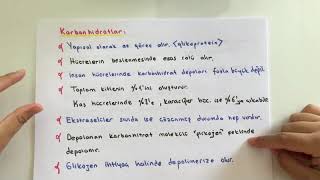 Karbonhidratlar;
Yapısal olarak az görev alır. (glikoprotein)
Hücrelerin beslenmesinde esas rolü alır.
İnsan hücrelerinde karbonhidrat depoları fazla büyük değil
Toplam kitlenin %1'ini oluşturur.
Kas hücrelerinde %3'e, karaciğer hcc. ise %6'ya çıkabilir
Ekstraselüler sıvıda ise çözünmüş durumda hep vardır.
Depolanan karbonhidrat molekülü "glikojen" şeklinde
depolanır.
Glikojen ihtiyaç halinde depolimerize olur.